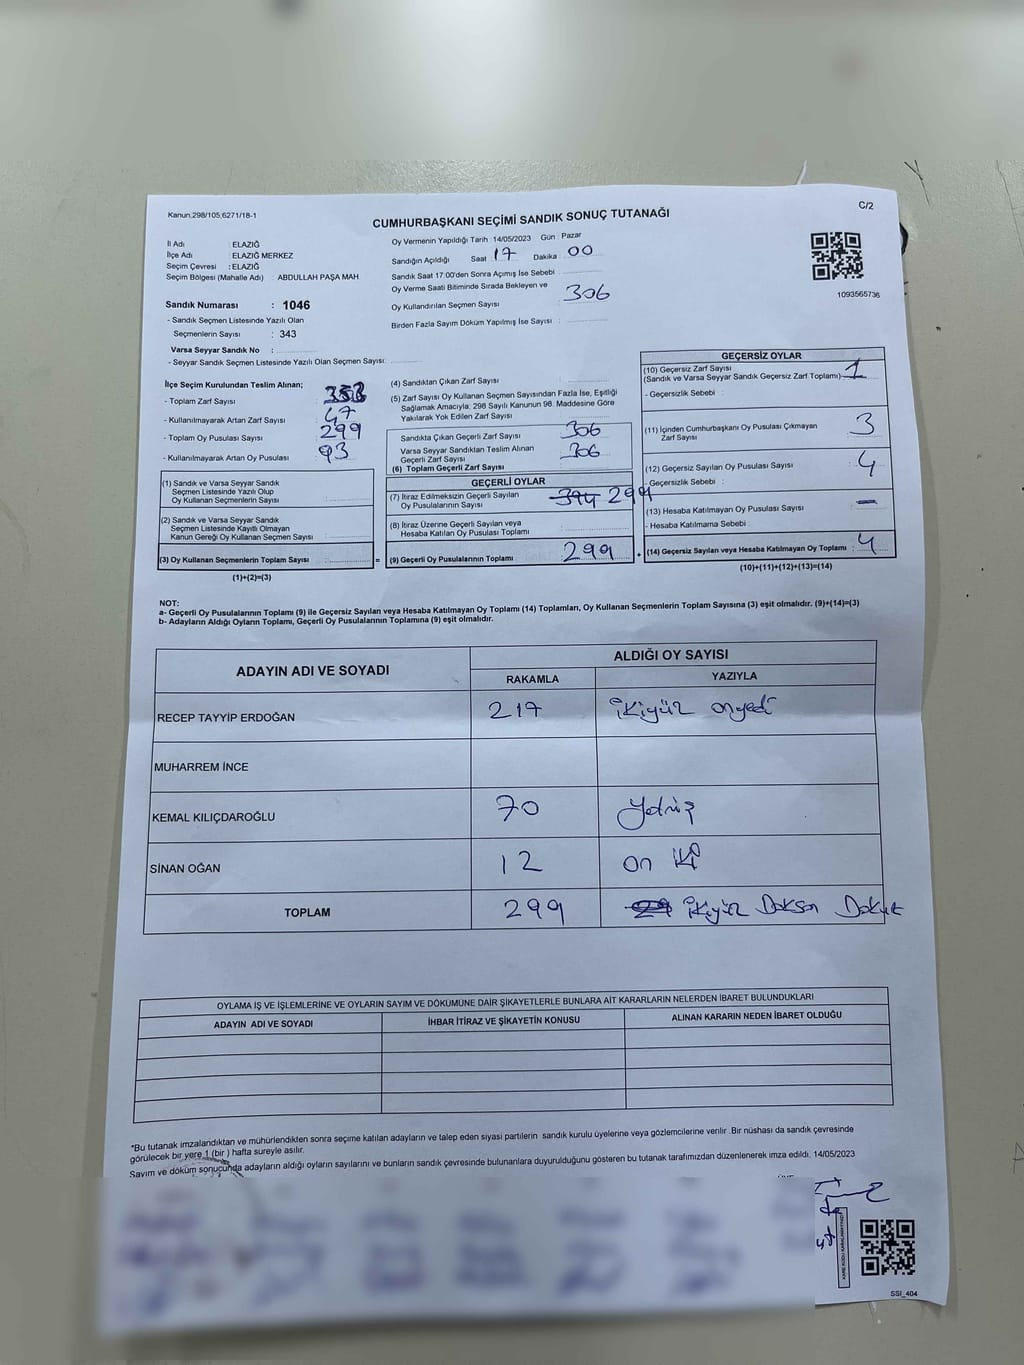 Kanun,298/105,6271/18-1
C/2
CUMHURBAŞKANI SEÇİMİ SANDIK SONUÇ TUTANAĞI
İl Adı : ELAZIĞ
İlçe Adı : ELAZIĞ MERKEZ
Seçim Çevresi : ELAZIĞ
Seçim Bölgesi (Mahalle Adı) : ABDULLAH PAŞA MAH.
Sandık Numarası : 1046
- Sandık Seçmen Listesinde Yazılı Olan
Seçmenlerin Sayısı : 343
Varsa Seyyar Sandık No :
- Seyyar Sandık Seçmen Listesinde Yazılı Olan Seçmen Sayısı:
Oy Vermenin Yapıldığı Tarih : 14/05/2023 Gün : Pazar
Sandığın Açıldığı Saat 17 Dakika : 00
Sandık Saat 17:00'den Sonra Açımış İse Sebebi
Oy Verme Saati Bitiminde Sırada Bekleyen ve
Oy Kullandırılan Seçmen Sayısı : 306
Birden Fazla Sayım Döküm Yapılmış İse Sayısı :
1093565736
İlçe Seçim Kurulundan Teslim Alınan;
- Toplam Zarf Sayısı :
- Kullanılmayarak Artan Zarf Sayısı : 47
- Toplam Oy Pusulası Sayısı : 299
- Kullanılmayarak Artan Oy Pusulası : 93
(1) Sandık ve Varsa Seyyar Sandık
Seçmen Listesinde Yazılı Olup
Oy Kullanan Seçmenlerin Sayısı :
(2) Sandık ve Varsa Seyyar Sandık
Seçmen Listesinde Kayıtlı Olmayan
Kanun Gereği Oy Kullanan Seçmen Sayısı :
(3) Oy Kullanan Seçmenlerin Toplam Sayısı : =
(1)+(2)=(3)
(4) Sandıktan Çıkan Zarf Sayısı :
(5) Zarf Sayısı Oy Kullanan Seçmen Sayısından Fazla İse, Eşitliği
Sağlamak Amacıyla; 298 Sayılı Kanunun 98. Maddesine Göre
Yakılarak Yok Edilen Zarf Sayısı :
Sandıkta Çıkan Geçerli Zarf Sayısı : 306
Varsa Seyyar Sandıktan Teslim Alınan
Geçerli Zarf Sayısı : 306
(6) Toplam Geçerli Zarf Sayısı :
GEÇERLİ OYLAR
(7) İtiraz Edilmeksizin Geçerli Sayılan
Oy Pusulalarının Sayısı : 299
(8) İtiraz Üzerine Geçerli Sayılan veya
Hesaba Katılan Oy Pusulası Toplamı :
(9) Geçerli Oy Pusulalarının Toplamı : 299
GEÇERSİZ OYLAR
(10) Geçersiz Zarf Sayısı
(Sandık ve Varsa Seyyar Sandık Geçersiz Zarf Toplamı) : 1
- Geçersizlik Sebebi :
(11) İçinden Cumhurbaşkanı Oy Pusulası Çıkmayan
Zarf Sayısı : 3
(12) Geçersiz Sayılan Oy Pusulası Sayısı : 4
- Geçersizlik Sebebi :
(13) Hesaba Katılmayan Oy Pusulası Sayısı : –
- Hesaba Katılmama Sebebi :
(14) Geçersiz Sayılan veya Hesaba Katılmayan Oy Toplamı : 4
(10)+(11)+(12)+(13)=(14)
NOT:
a- Geçerli Oy Pusulalarının Toplamı (9) ile Geçersiz Sayılan veya Hesaba Katılmayan Oy Toplamı (14) Toplamları, Oy Kullanan Seçmenlerin Toplam Sayısına (3) eşit olmalıdır. (9)+(14)=(3)
b- Adayların Aldığı Oyların Toplamı, Geçerli Oy Pusulalarının Toplamına (9) eşit olmalıdır.
ADAYIN ADI VE SOYADI ALDIĞI OY SAYISI
RAKAMLA YAZIYLA
RECEP TAYYİP ERDOĞAN 217 ikiyüz onyedi
MUHARREM İNCE
KEMAL KILIÇDAROĞLU 70 yetmiş
SİNAN OĞAN 12 on iki
TOPLAM 299 ikiyüz Doksan Dokuz
OYLAMA İŞ VE İŞLEMLERİNE VE OYLARIN SAYIM VE DÖKÜMÜNE DAİR ŞİKAYETLERLE BUNLARA AİT KARARLARIN NELERDEN İBARET BULUNDUKLARI
ADAYIN ADI VE SOYADI İHBAR İTİRAZ VE ŞİKAYETİN KONUSU ALINAN KARARIN NEDEN İBARET OLDUĞU
*Bu tutanak imzalandıktan ve mühürlendikten sonra seçime katılan adayların ve talep eden siyasi partilerin sandık kurulu üyelerine veya gözlemcilerine verilir .Bir nüshası da sandık çevresinde
görülecek bir yere 1 (bir ) hafta süreyle asılır.
Sayım ve döküm sonucunda adayların aldığı oyların sayılarını ve bunların sandık çevresinde bulunanlara duyurulduğunu gösteren bu tutanak tarafımızdan düzenlenerek imza edildi. 14/05/2023
SSI_404